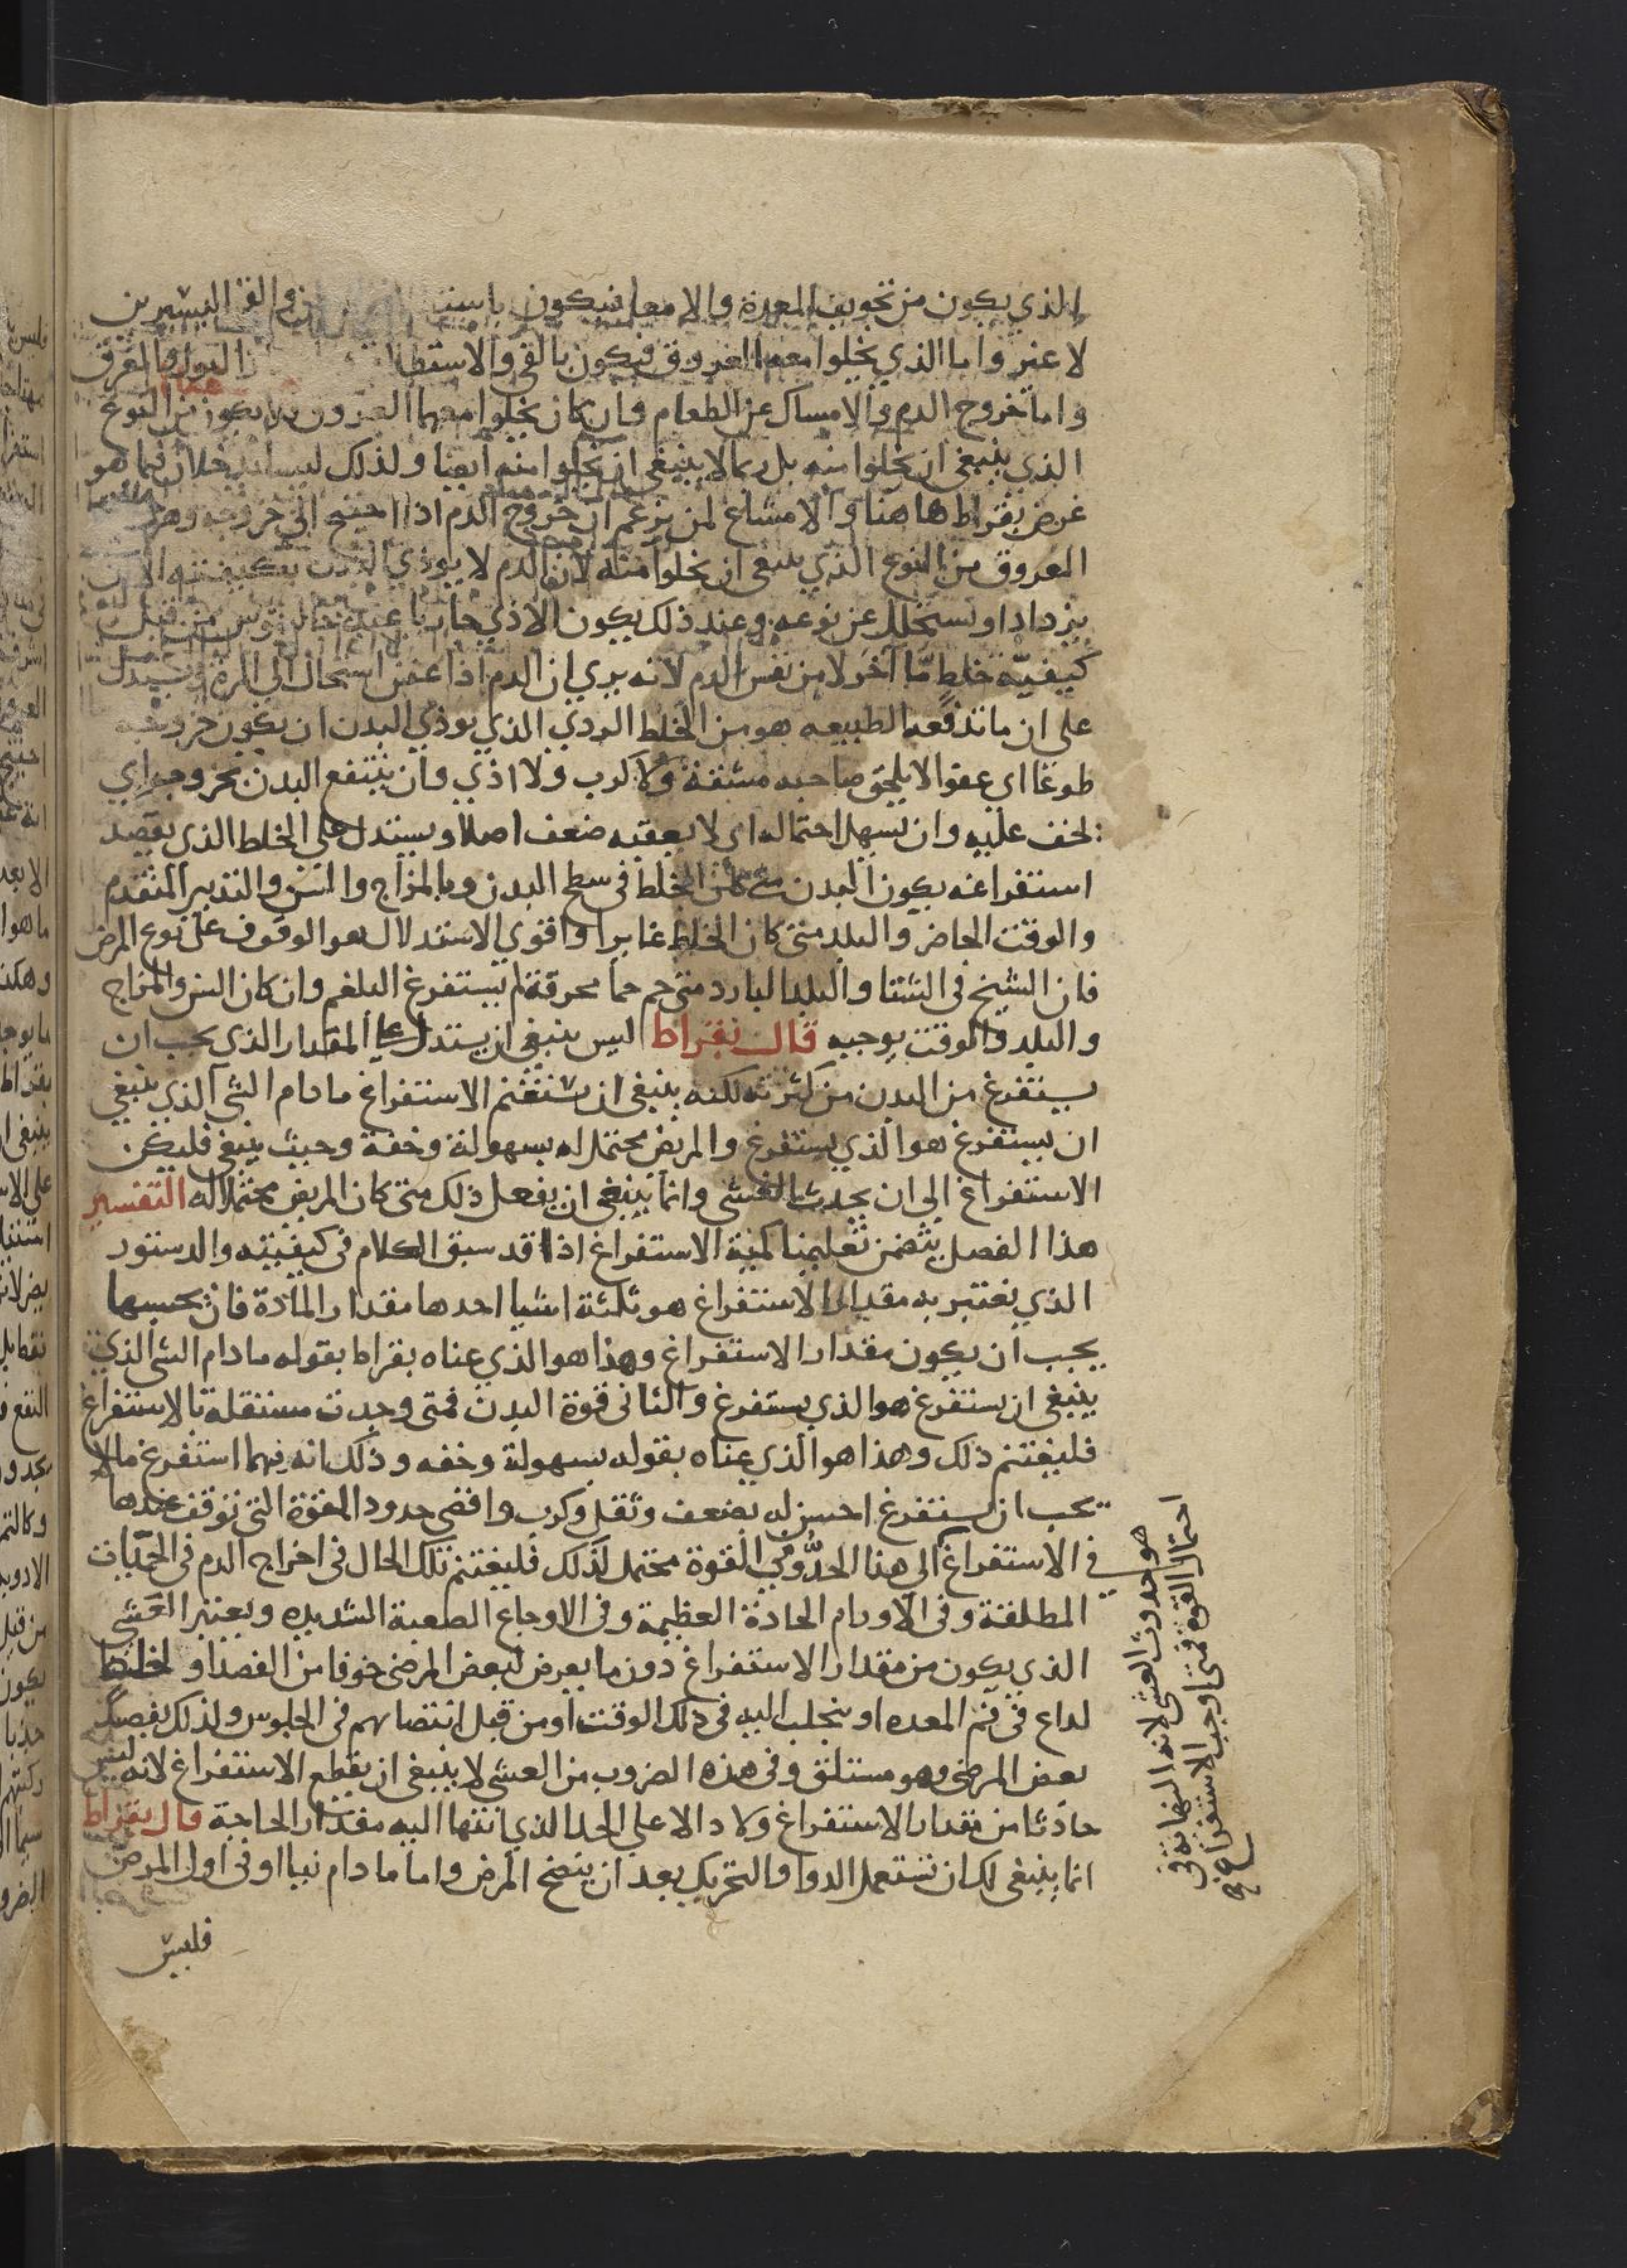 الذي يكون من تجويف المعدة والامعا فيكون والقى اليسيرين
لا غير واما الذي يخلوا معه العروق فيكون بالقى والاستطلا البول والعرق
واما خروج الدم والامساك عن الطعام فان كان يخلوا معهما العروق فلا يكون من النوع
الذي ينبغي ان يخلوا منه بل ربما لا ينبغي ان يخلوا منه ايضا ولذلك ليسا يدخلان فيما هو
غرض بقراط هاهنا والامتناع لمن يزعم ان خروج الدم اذا احتيج الى خروجه وهو
العروق من النوع الذي ينبغي ان يخلوا منه لان الدم لا يوذي البدن بكيفيته الا ان
يزداد او يستحيل عن نوعه وعند ذلك يكون الاذي من قبل
كيفيّة خلط مّا آخر لا من نفس الدم لانه يري ان الدم اذا عفن استحال الي المرة ويستدل
على ان ما تدفعه الطبيعه هو من الخلط الردي الذي يوذي البدن ان يكون خروجه
طوعا اي عفوا لا يلحق صاحبه مشقة ولا كرب ولا اذي وان ينتفع البدن بخروجه اي
يخف عليه وان يسهل احتماله اي لا يعقبه ضعف اصلا ويستدل علي الخلط الذي يقصد
استفراغه بكون البدن متى كان الخلط في سطح البدن وبالمزاج والسن والتدبير المتقدم
والوقت الحاضر والبلد متى كان الخلط غايرا واقوي الاستدلال هو الوقوف على نوع المرض
فان الشيخ في الشتا والبلد البارد متى حم حما محرقة لم يستفرغ البلغم وان كان السن والمزاج
والبلد والوقت يوجبه قال بقراط ليس ينبغي ان يستدل على المقدار الذي يجب ان
يستفرغ من البدن من كثرته لكنه ينبغي ان يستغنم الاستفراغ ما دام الشي الذي ينبغي
ان يستفرغ هو الذي يستفرغ والمريض محتمل له بسهولة وخفة وحيث ينبغي فليكن
الاستفراغ الى ان يحدث الغشي وانما ينبغي ان يفعل ذلك متى كان المريض محتملا له التفسير
هذا الفصل يتضمن تعليمنا كمية الاستفراغ اذا قد سبق الكلام في كيفيته والدستور
الذي يعتبر به مقدار الاستفراغ هو ثلثة اشيا احدها مقدار المادة فان بحسبها
يجب ان يكون مقدار الاستفراغ وهذا هو الذي عناه بقراط بقوله ما دام الشى الذي
ينبغي ان يستفرغ هو الذي يستفرغ والثاني قوة البدن فمتى وجدت مستقلة بالاستفراغ
فليغتنم ذلك وهذا هو الذي عناه بقوله بسهولة وخفه وذلك انه مهما استفرغ ما لا
يجب ان يستفرغ احسن له بضعف وثقل وكرب واقصى حدود القوة التي توقف عندها
في الاستفراغ الي هذا الحدّ وهي القوة محتمل لذلك فليغتنم تلك الحال في اخراج الدم في الحمّيات
المطلقة وفي الاورام الحادة العظيمة وفي الاوجاع الصعبة الشديده ويعتبر الغشي
الذي يكون من مقدار الاستفراغ دون ما يعرض لبعض المرضى خوفا من الفصد او لخلط
لداع في فم المعده او ينجلب اليه في ذلك الوقت او من قبل انتصابهم في الجلوس ولذلك يفصد
بعض المرضى وهو مستلق وفي هذه الضروب من الغشي لا ينبغي ان يقطع الاستفراغ لانه ليس
حادثا من مقدار الاستفراغ ولا دالا علي الحد الذي انتها اليه مقدار الحاجة قال بقراط
انما ينبغي لك ان تستعمل الدوا والتحريك بعد ان ينضج المرض واما ما دام نيا او في اول المرض
فليس
هو حدوث الغشي لانه النهاية في
احتمال القوة فمتى اوجب الاستفراغ